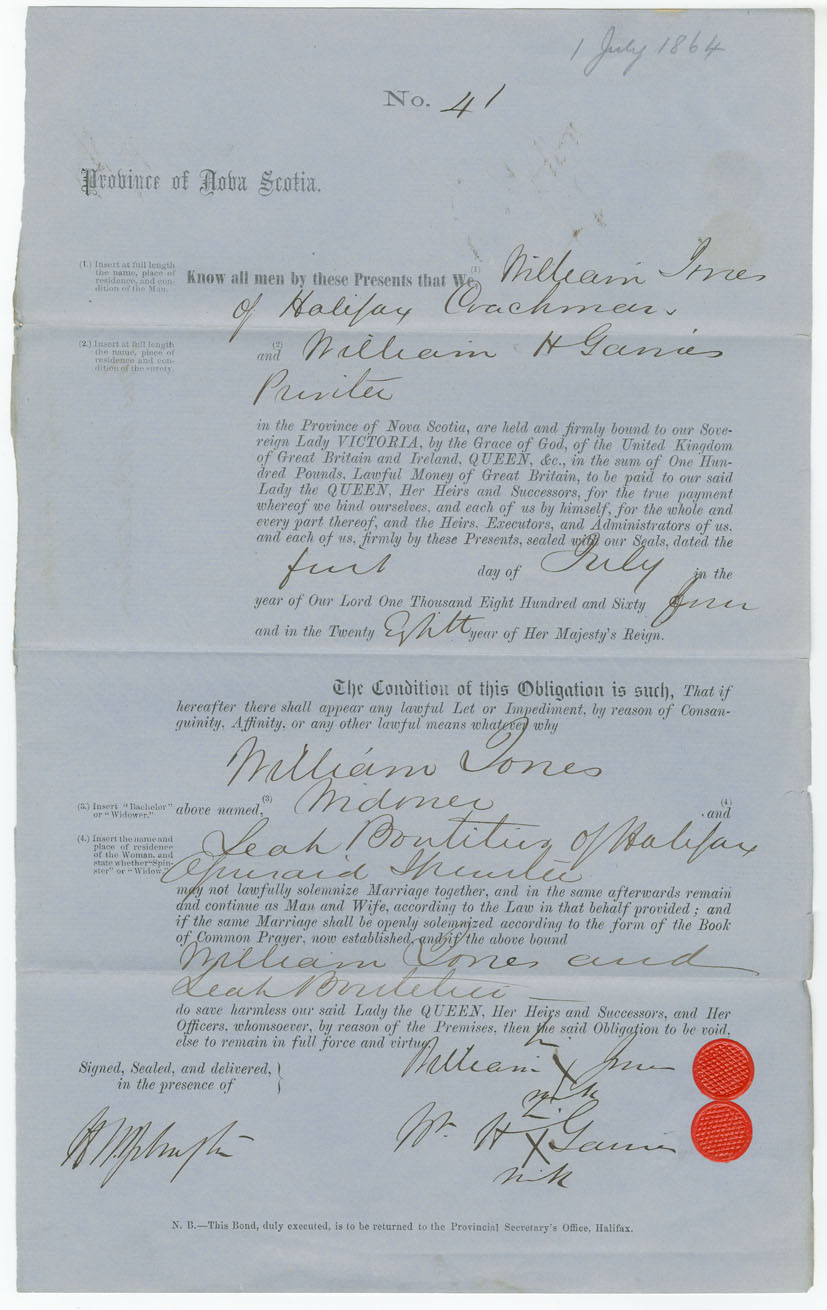 1 July 1864
No. 41
Province of Nova Scotia.
(1.) Insert at full length
the name, place of
residence, and con-
dition of the Man.
Know all men by these Presents that We, (1) William Jones
of Halifax Coachman
(2.) Insert at full length
the name, place of
residence and con-
dition of the surety.
(2)
and William H
Printer
in the Province of Nova Scotia, are held and firmly bound to our Sove-
reign Lady VICTORIA, by the Grace of God, of the United Kingdom
of Great Britain and Ireland, QUEEN, &c., in the sum of One Hun-
dred Pounds, Lawful Money of Great Britain, to be paid to our said
Lady the QUEEN, Her Heirs and Successors, for the true payment
whereof we bind ourselves, and each of us by himself, for the whole and
every part thereof, and the Heirs, Executors, and Administrators of us,
and each of us, firmly by these Presents, sealed with our Seals, dated the
first day of July in the
year of Our Lord One Thousand Eight Hundred and Sixty four
and in the Twenty Eighth year of Her Majesty's Reign.
The Condition of this Obligation is such, That if
hereafter there shall appear any lawful Let or Impediment, by reason of Consan-
guinity, Affinity, or any other lawful means whatever why
William Jones
(3.) Insert "Bachelor"
or "Widower."
above named, (3) Widower (4) and
(4.) Insert the name and
place of residence
of the Woman, and
state whether "Spin-
ster" or "Widow."
Leah of Halifax
Spinster
may not lawfully solemnize Marriage together, and in the same afterwards remain
and continue as Man and Wife, according to the Law in that behalf provided; and
if the same Marriage shall be openly solemnized according to the form of the Book
of Common Prayer, now established, and if the above bound
William Jones and
Leah
do save harmless our said Lady the QUEEN, Her Heirs and Successors, and Her
Officers, whomsoever, by reason of the Premises, then the said Obligation to be void,
else to remain in full force and virtue.
Signed, Sealed, and delivered,
in the presence of
his
William X Jones
mark
his
Wm. H X
mark
N. B.—This Bond, duly executed, is to be returned to the Provincial Secretary's Office, Halifax.